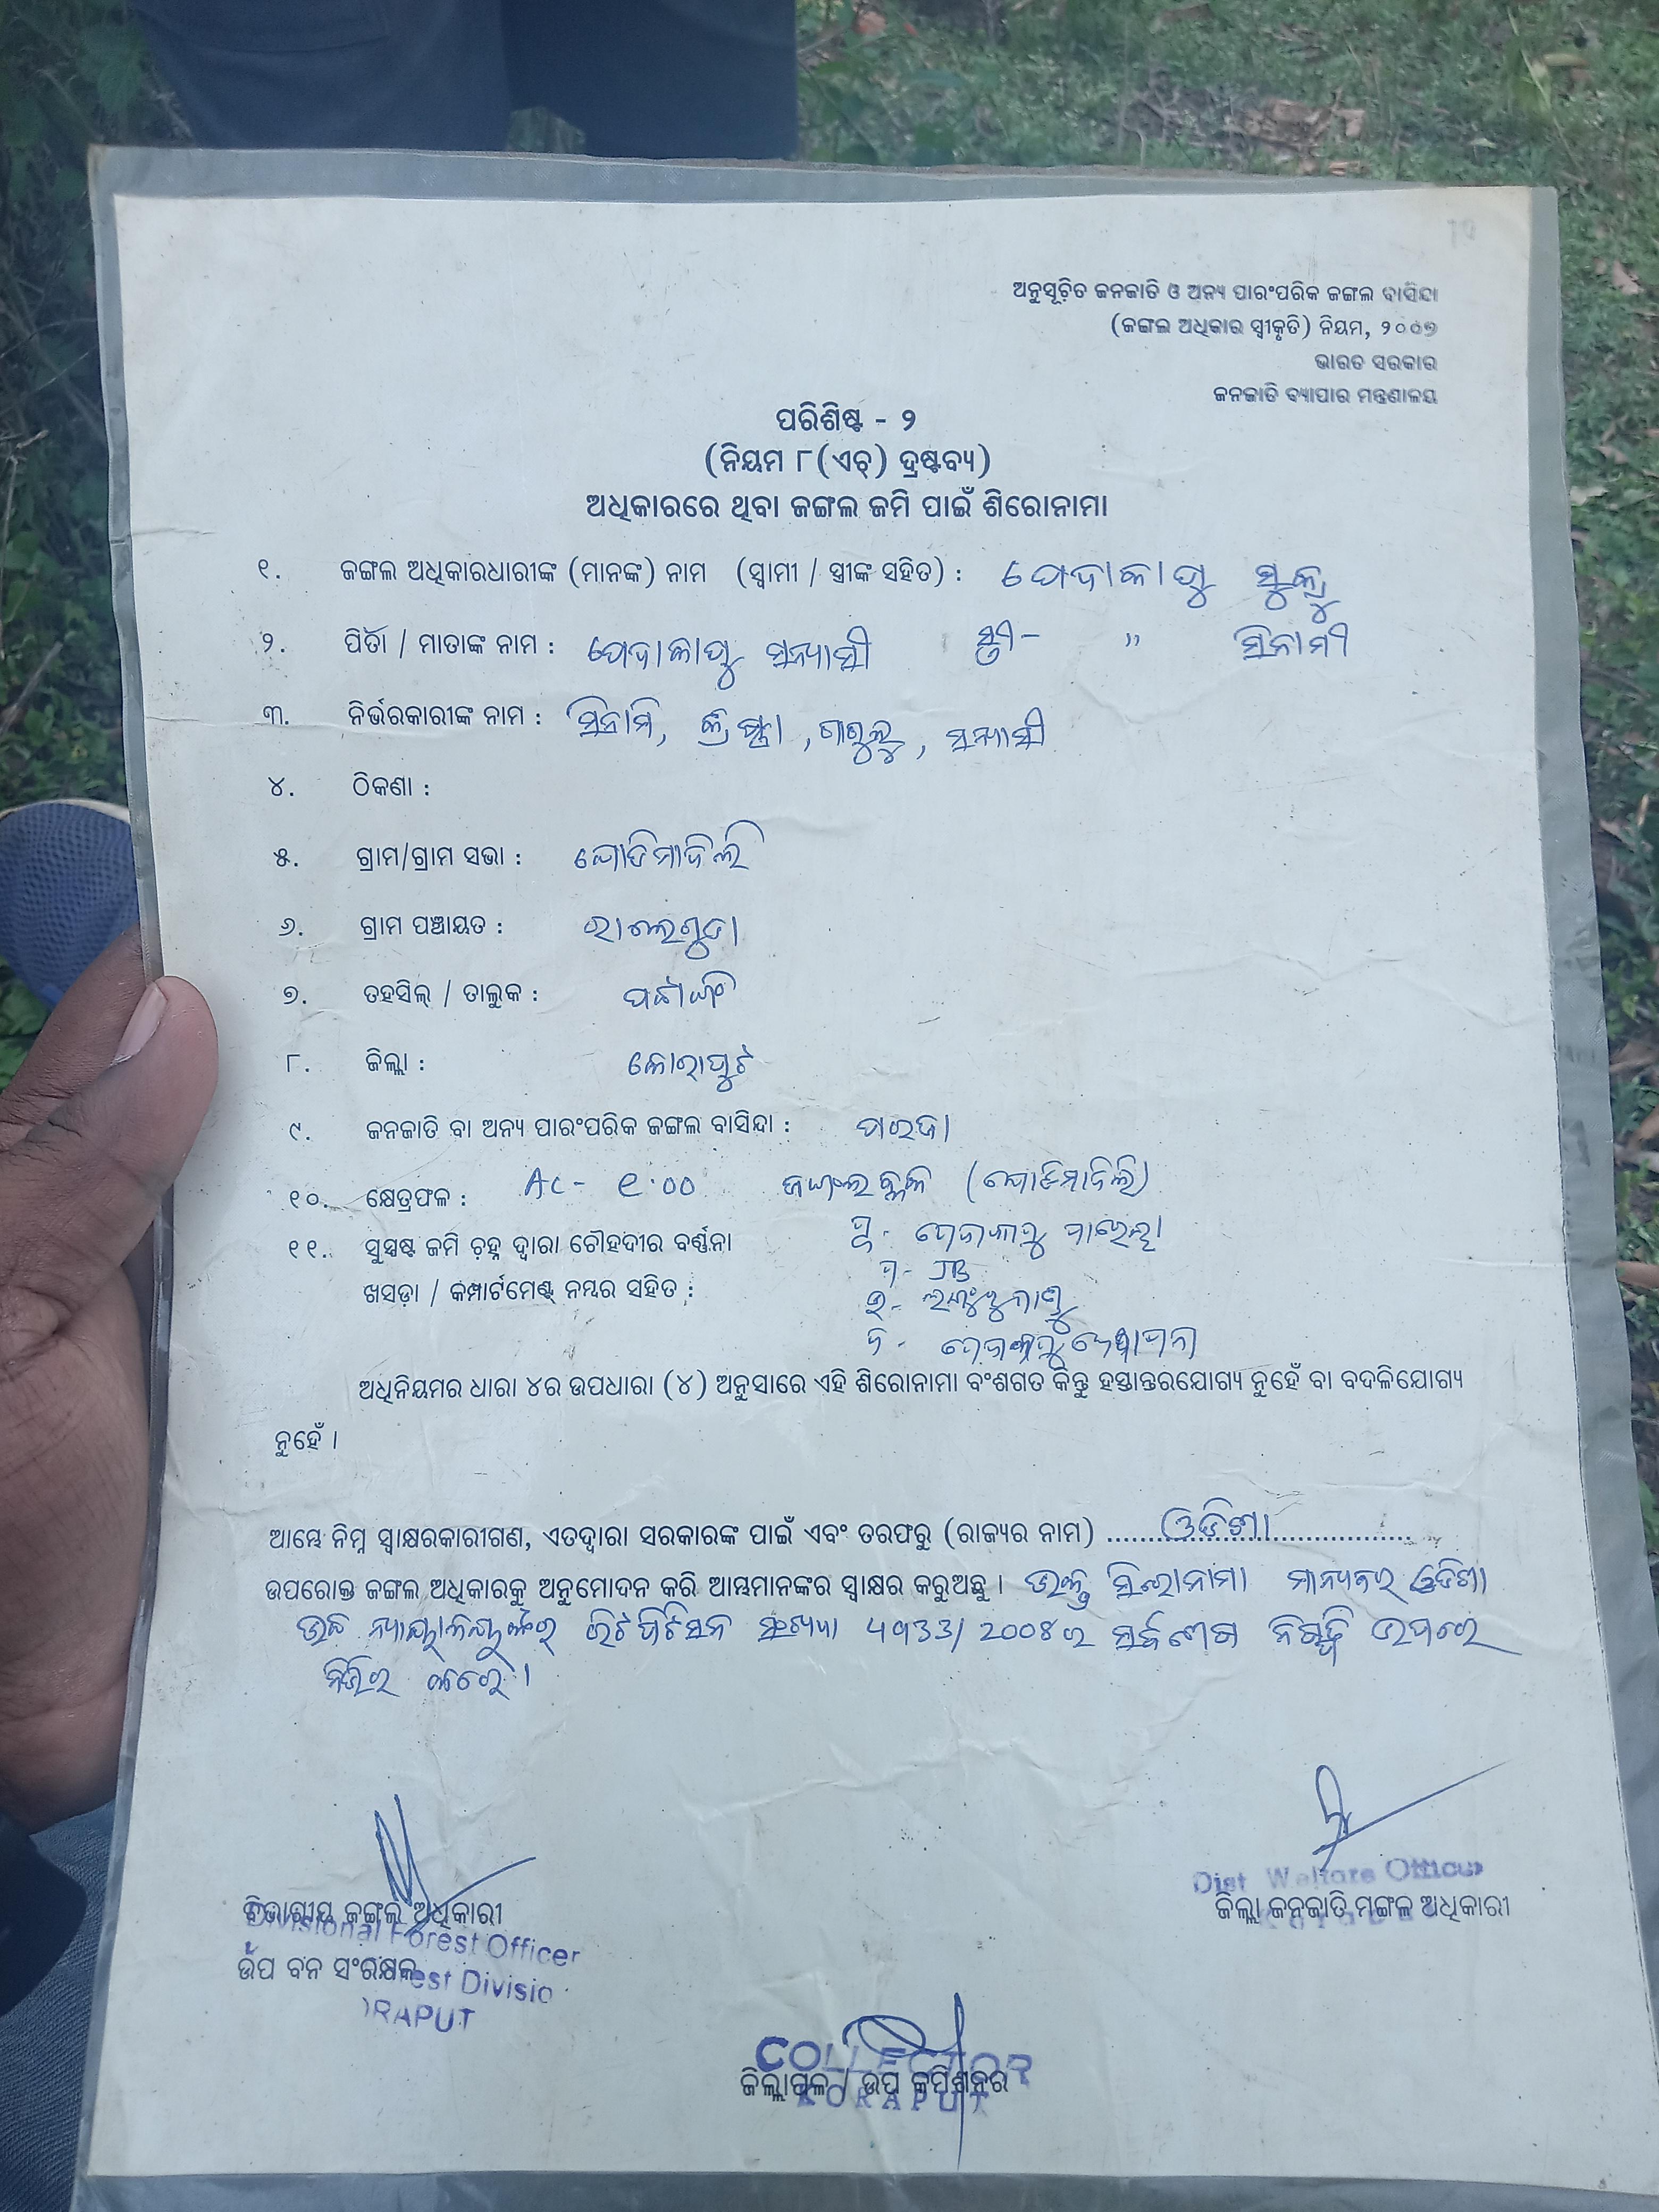 ଅନୁସୂଚିତ ଜନଜାତି ଓ ଅନ୍ୟ ପାରଂପରିକ ଜଙ୍ଗଲ ବାସିନ୍ଦା
(ଜଙ୍ଗଲ ଅଧିକାର ସ୍ୱୀକୃତି) ନିୟମ, ୨୦୦୭
ଭାରତ ସରକାର
ଜନଜାତି ବ୍ୟାପାର ମନ୍ତ୍ରଣାଳୟ
ପରିଶିଷ୍ଟ - ୨
(ନିୟମ ୮(ଏଚ୍) ଦ୍ରଷ୍ଟବ୍ୟ)
ଅଧିକାରରେ ଥିବା ଜଙ୍ଗଲ ଜମି ପାଇଁ ଶିରୋନାମା
୧. ଜଙ୍ଗଲ ଅଧିକାରଧାରୀଙ୍କ (ମାନଙ୍କ) ନାମ (ସ୍ୱାମୀ / ସ୍ତ୍ରୀଙ୍କ ସହିତ) : ପେଦାକାପୁ ସୁକ୍ରୁ
୨. ପିତା / ମାତାଙ୍କ ନାମ : ପେଦାକାପୁ ସନ୍ୟାସୀ ସ୍ତ୍ରୀ- " ସିନାମୀ
୩. ନିର୍ଭରକାରୀଙ୍କ ନାମ : ସିନାମି, ସନ୍ୟାସୀ
୪. ଠିକଣା :
୫. ଗ୍ରାମ/ଗ୍ରାମ ସଭା : ଯୋଡିମାଜିଲି
୬. ଗ୍ରାମ ପଞ୍ଚାୟତ : ରାଲେଗୁଡା
୭. ତହସିଲ୍ / ତାଲୁକ : ପଟାଙ୍ଗି
୮. ଜିଲ୍ଲା : କୋରାପୁଟ
୯. ଜନଜାତି ବା ଅନ୍ୟ ପାରଂପରିକ ଜଙ୍ଗଲ ବାସିନ୍ଦା : ପରଜା
୧୦. କ୍ଷେତ୍ରଫଳ : Ac- ୧.00 ଜଙ୍ଗଲ ବ୍ଲକ (ଯୋଡିମାଜିଲି)
୧୧. ସୁସ୍ପଷ୍ଟ ଜମି ଚିହ୍ନ ଦ୍ୱାରା ଚୌହଦୀର ବର୍ଣ୍ଣନା ପୂ- ପେଦାକାପୁ
ପ- JB
ଖସଡ଼ା / କମ୍ପାର୍ଟମେଣ୍ଟ ନମ୍ବର ସହିତ : ଉ-
ଦ- ପେଦାକାପୁ
ଅଧିନିୟମର ଧାରା ୪ର ଉପଧାରା (୪) ଅନୁସାରେ ଏହି ଶିରୋନାମା ବଂଶଗତ କିନ୍ତୁ ହସ୍ତାନ୍ତରଯୋଗ୍ୟ ନୁହେଁ ବା ବଦଳିଯୋଗ୍ୟ
ନୁହେଁ ।
ଆମ୍ଭେ ନିମ୍ନ ସ୍ୱାକ୍ଷରକାରୀଗଣ, ଏତଦ୍ୱାରା ସରକାରଙ୍କ ପାଇଁ ଏବଂ ତରଫରୁ (ରାଜ୍ୟର ନାମ) ..........ଓଡିଶା..........
ଉପରୋକ୍ତ ଜଙ୍ଗଲ ଅଧିକାରକୁ ଅନୁମୋଦନ କରି ଆମ୍ଭମାନଙ୍କର ସ୍ୱାକ୍ଷର କରୁଅଛୁ । ଉକ୍ତ ସିରୋନାମା ମାନ୍ୟବର ଓଡିଶା
ଉଚ୍ଚ ନ୍ୟାୟାଳୟଙ୍କର ରିଟପିଟିସନ ସଂଖ୍ୟା 4933/2008ର ସର୍ବଶେଷ ନିଷ୍ପତ୍ତି ଉପରେ
ନିର୍ଭର କରେ ।
ବିଭାଗୀୟ ଜଙ୍ଗଲ ଅଧିକାରୀ
Divisional Forest Officer
ଉପ ବନ ସଂରକ୍ଷକ
Dist Welfare Officer
ଜିଲ୍ଲା ଜନଜାତି ମଙ୍ଗଳ ଅଧିକାରୀ
COLLECTOR
ଜିଲ୍ଲାପାଳ / ଉପ କମିଶନର
KORAPUT